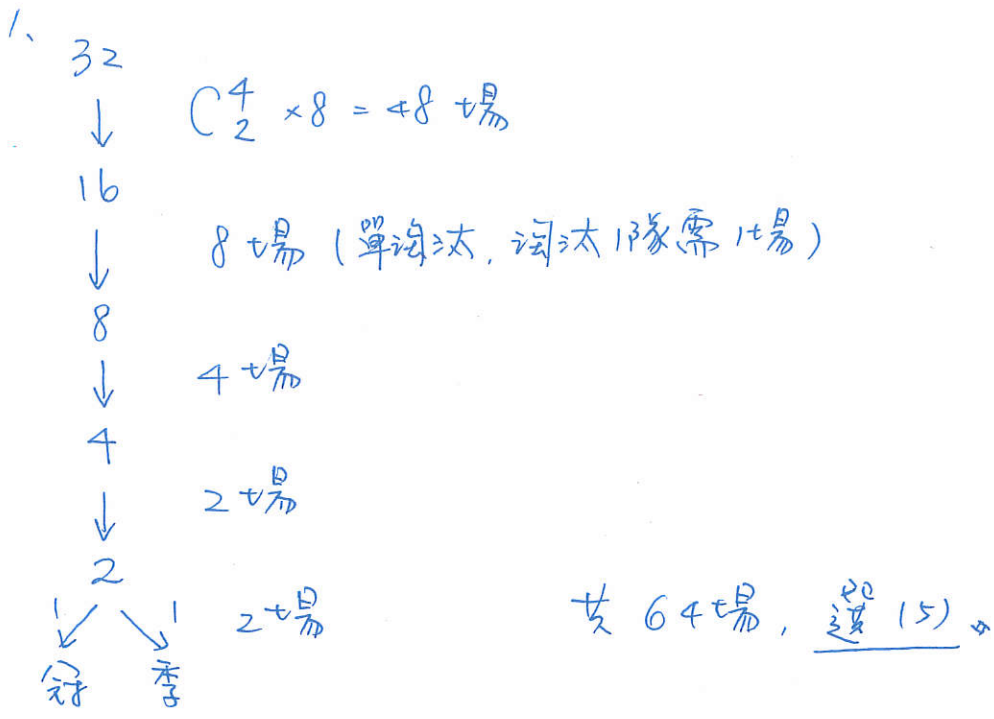 1、
32
↓
C⁴₂ × 8 = 48 場
16
↓
8 場 (單淘汰, 淘汰1隊需1場)
8
↓
4 場
4
↓
2 場
2
1 ↙ ↘ 1
2 場
冠 季
共 64 場, 選 (5)